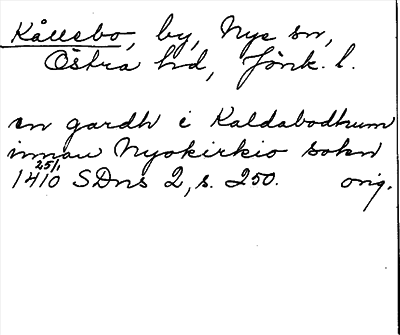 Kållebo, by, Nye sn,
Östra hd, Jönk. l.
en gardh i Kaldabodhum
innan Nyokirkio sokn
25/1
1410 SDns 2, s. 250. orig.